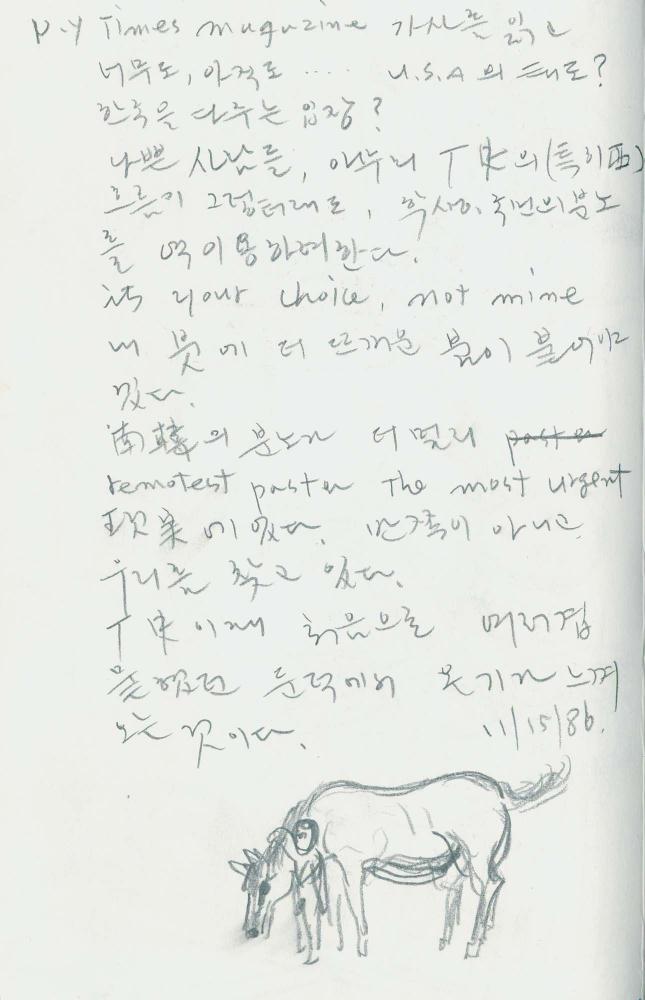 N.Y Times magazine 기사를 읽고
너무도, 아직도 .... U.S.A 의 태도?
한국을 다루는 입장?
나쁜 사람들, 아무리 丁史의 (특히 西)
흐름이 그렇더래도, 학생, 국민의 분노
를 역이용하려한다.
its your choice, not mine
내 붓에 더 뜨거운 불이 붙어
있다.
南韓의 분노가 더 멀리
remotest past the most urgent
현실에 있다. 만족이 아니고
우리를 찾고 있다.
이제 처음으로
둔덕에서 온기가 느껴
오는 것이다. 11/15/86.